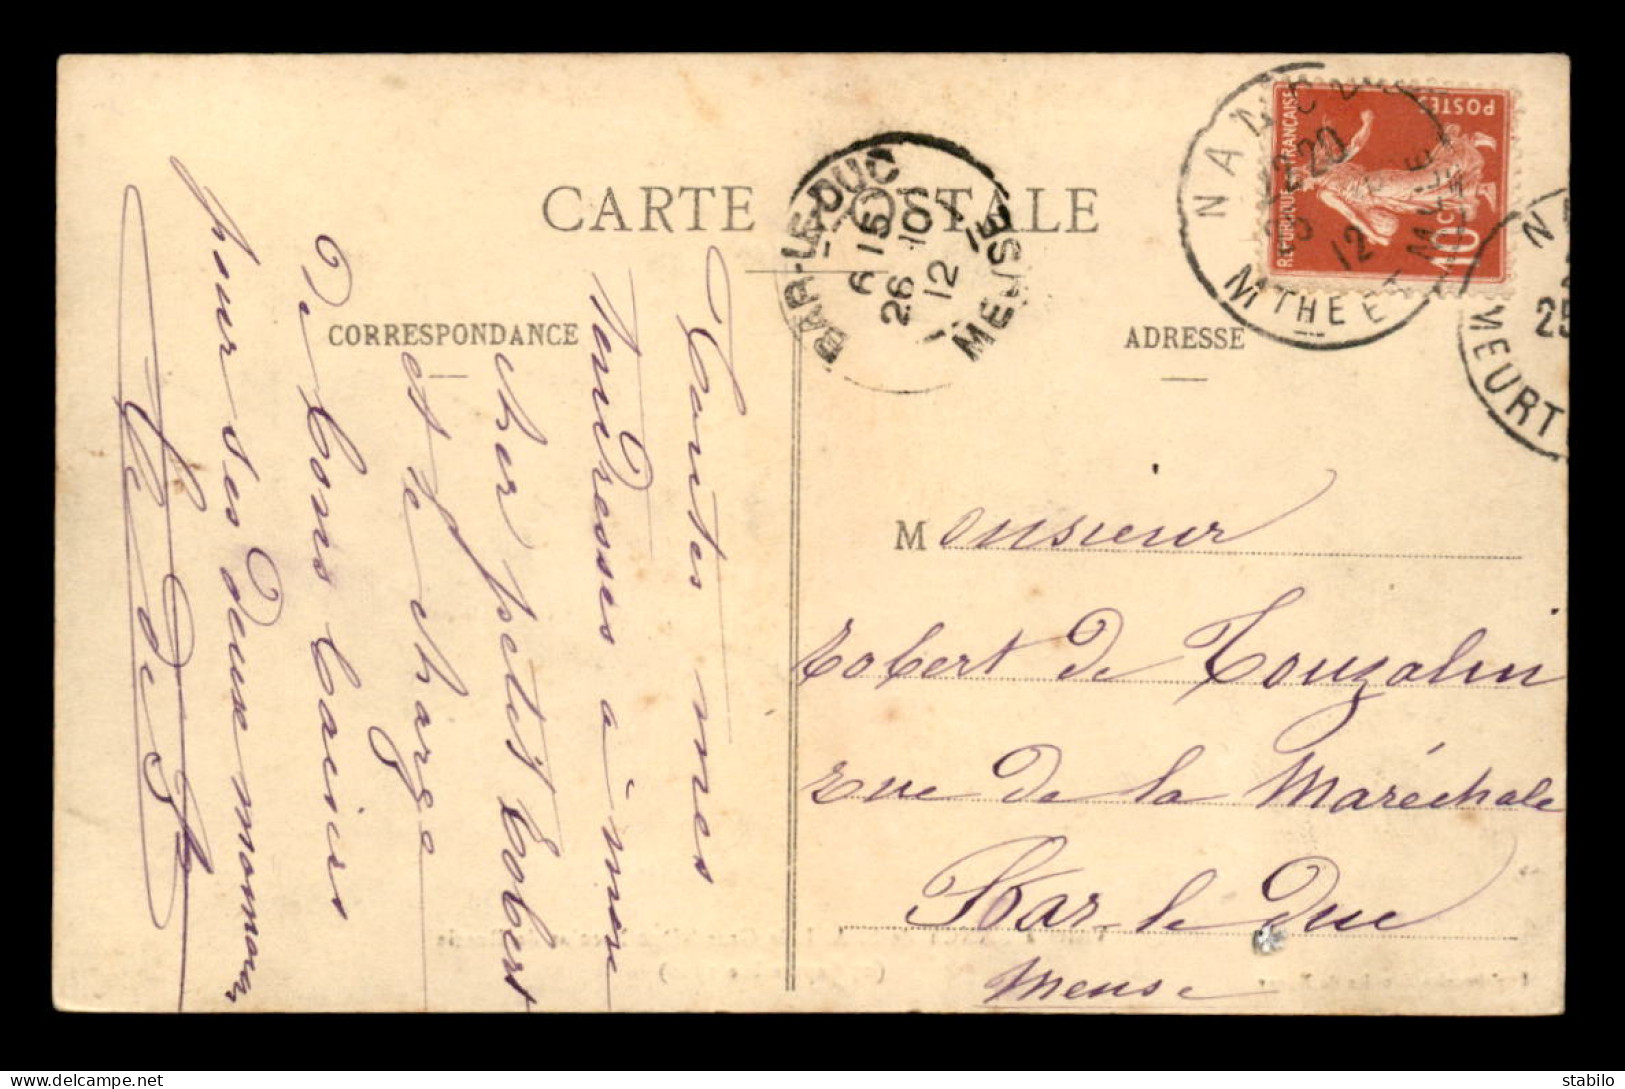 CARTE POSTALE
CORRESPONDANCE
ADRESSE
Toutes mes
tendresses à mon
cher petit Robert
et le charge
De bons baisers
pour ses deux mamans
BAR-LE-DUC
6 15
26 -10
12
MEUSE
NANCY
12 20
12
MTHE ET M
REPUBLIQUE FRANCAISE
POSTES
10c
25
MEURT
Monsieur
Robert de Touzalin
rue de la Maréchale
Bar-le-Duc
Meuse
stabilo